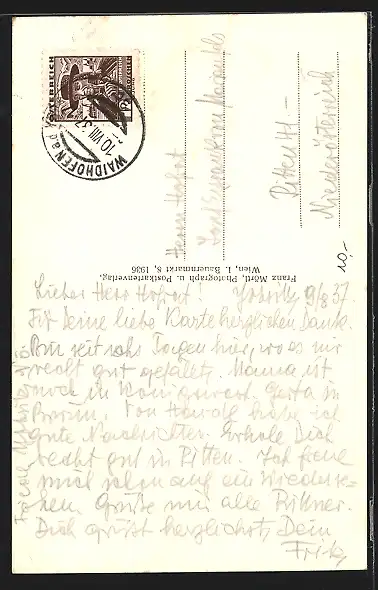 ÖSTERREICH
GROSCHEN
WAIDHOFEN a. d.
10. VIII. 37
Herrn Hofrat
Pitten 14.-
Niederösterreich
10,-
Franz Mörtl, Photograph u. Postkartenverlag.
Wien, I. Bauernmarkt 8, 1936
Lieber Herr Hofrat! 9/8 37.
Für Deine liebe Karte herzlichen Dank.
Bin seit Tagen hier, wo es mir
recht gut gefällt. Mama ist
noch in
Von habe ich
gute Nachrichten. Erhole Dich
recht gut in Pitten. Ich freue
mich schon auf ein Wiederse-
hen. Grüße mir alle Pittner.
Dich grüßt herzlichst Dein
Fritz